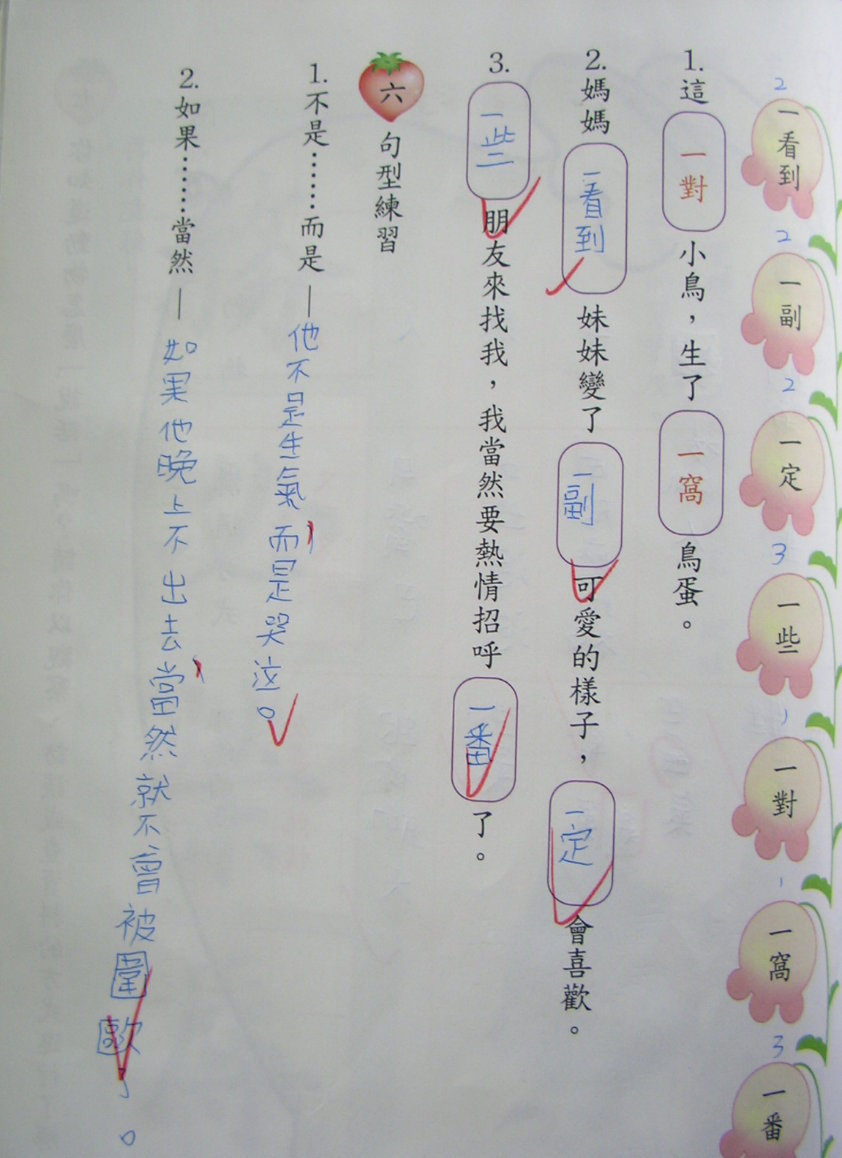 2 一看到
2 一副
2 一定
3 一些
1 一對
1 一窩
3 一番
1.這一對小鳥，生了一窩鳥蛋。
2.媽媽一看到妹妹變了一副可愛的樣子，一定會喜歡。
3.一些朋友來找我，我當然要熱情招呼一番了。
六 句型練習
1.不是……而是—他不是生氣，而是哭泣。
2.如果……當然—如果他晚上不出去，當然就不會被圍歐了。